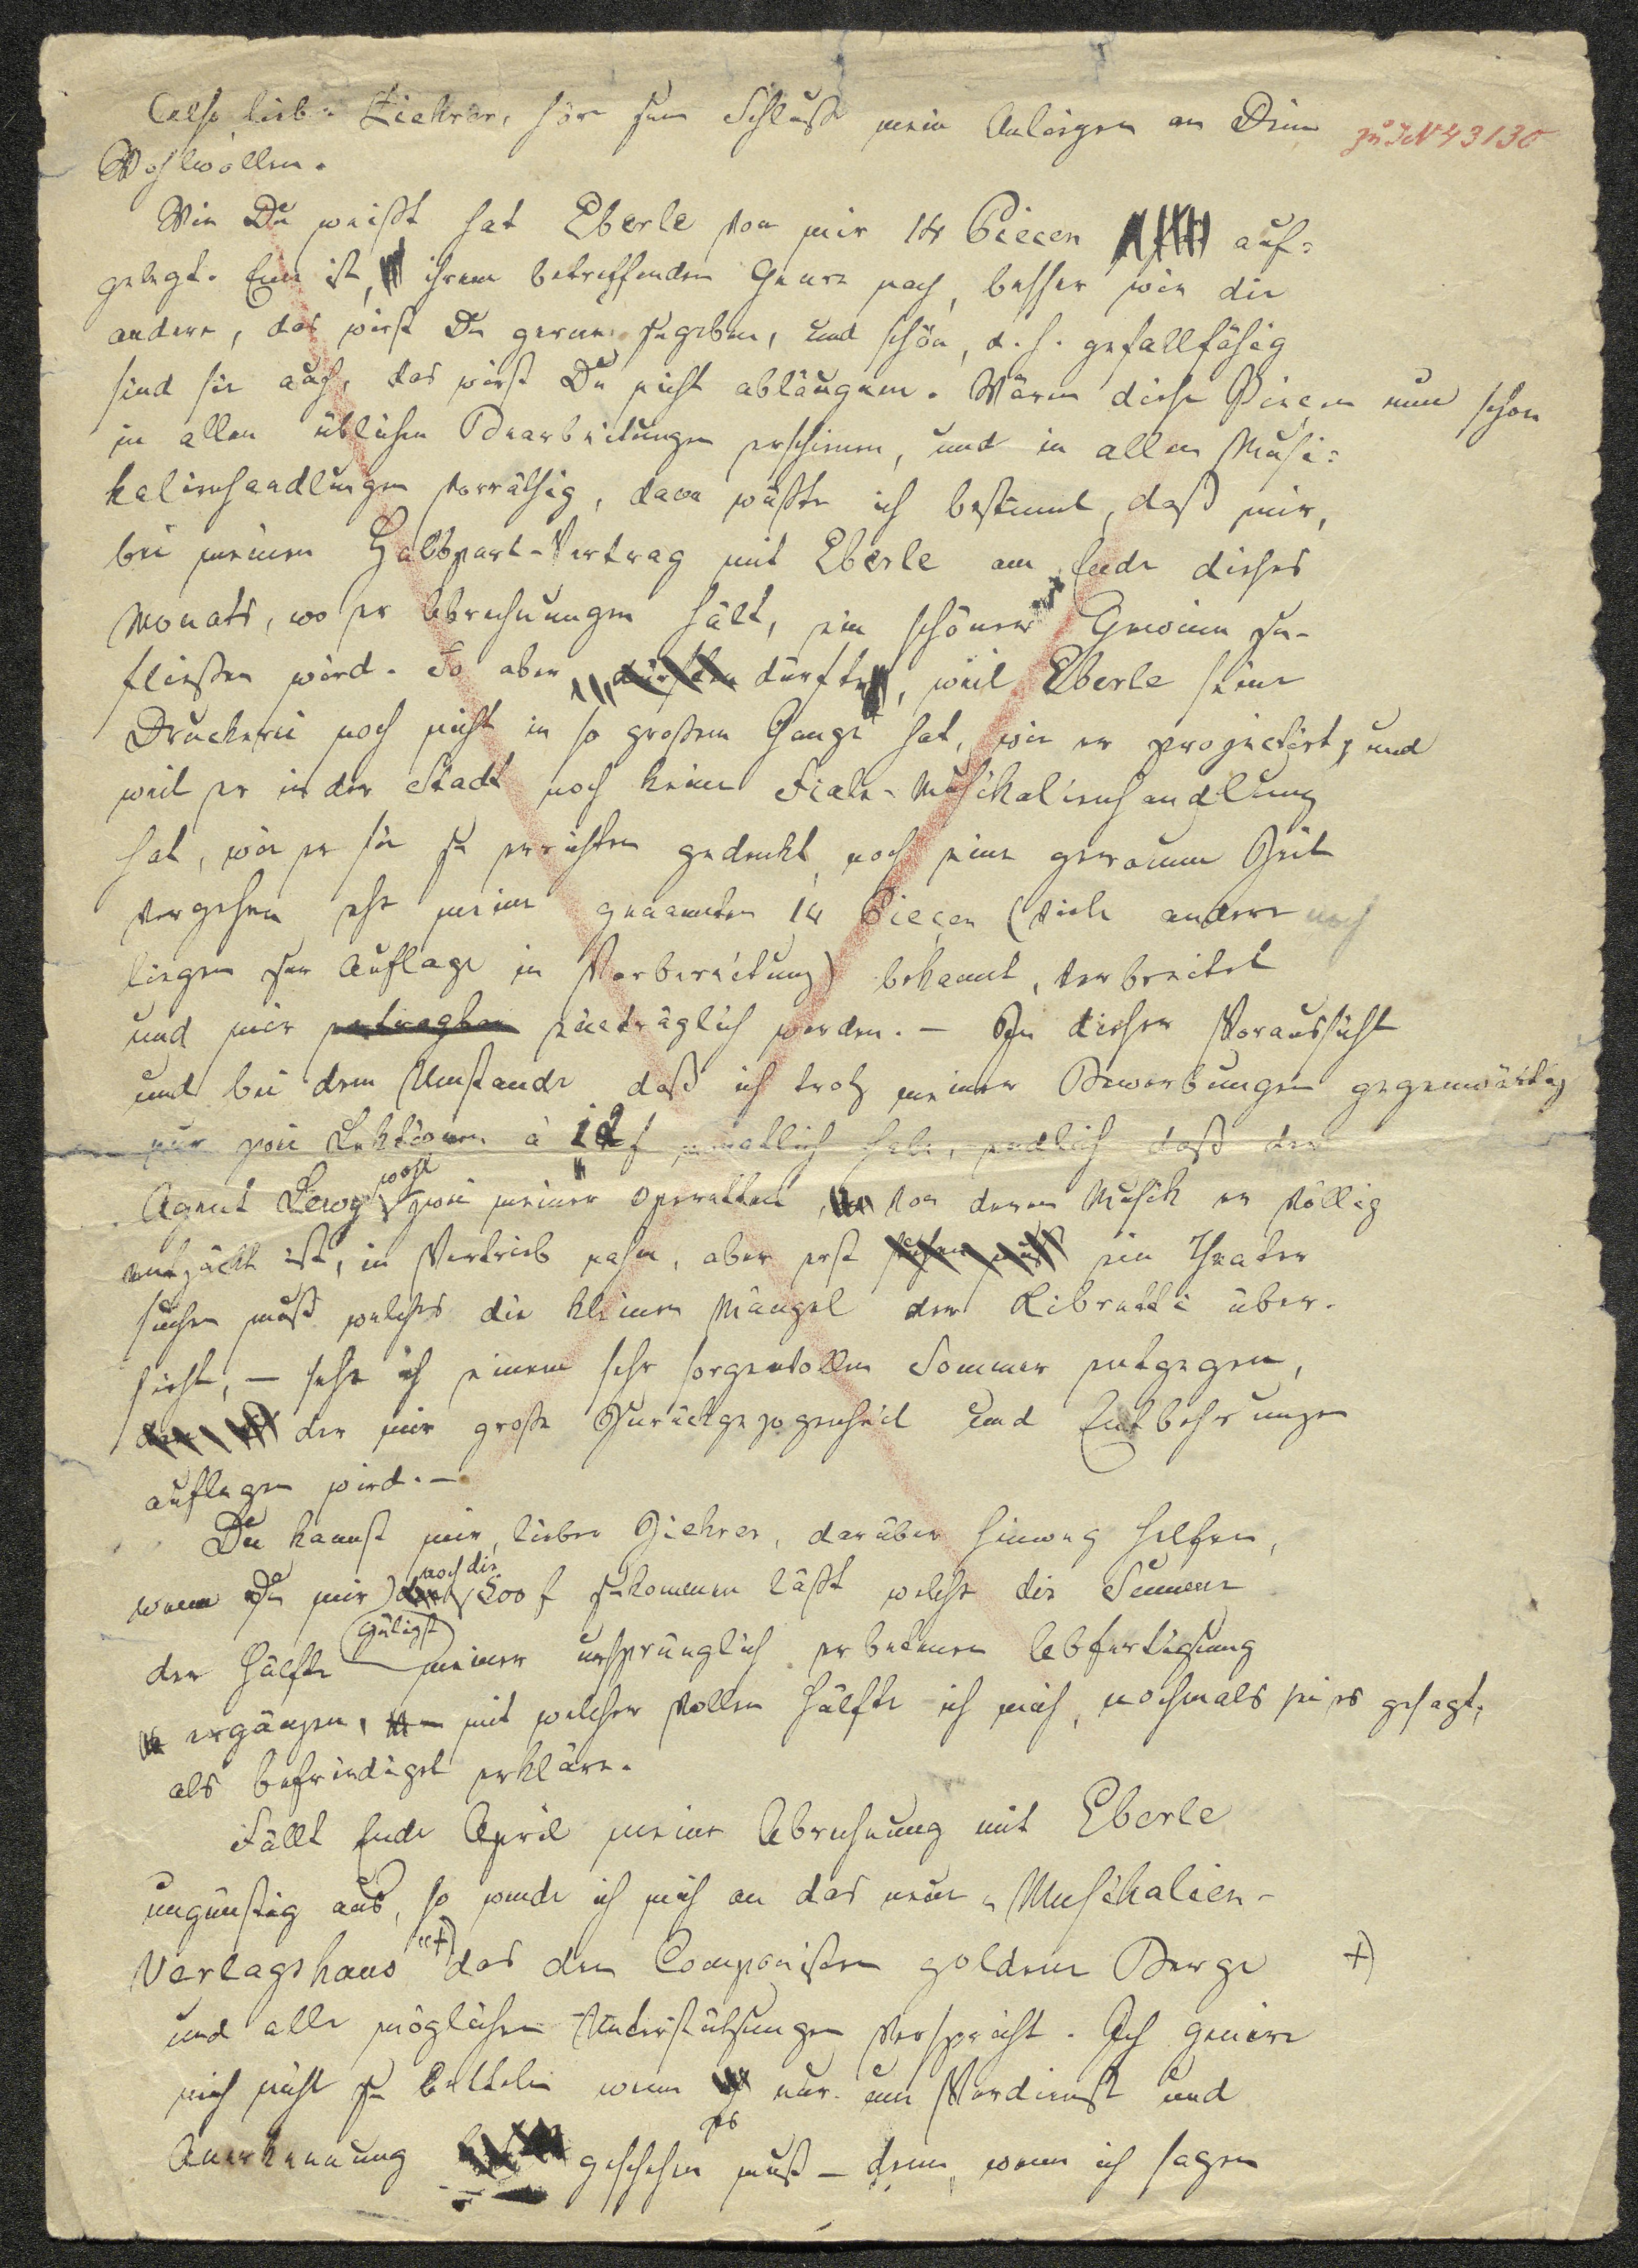 Also, lieber Ziehrer, hör zum Schluß mein Anliegen an Dein
zu IN 43130
Wohlwollen.
Wie Du weißt hat Eberle von mir 14 Piecen auf=
gelegt. Eine ist, ihrem betreffenden Genre nach, besser wie die
andere, das wirst Du gerne zugeben, und schön, d. h. gefallfähig
sind sie auch, das wirst Du nicht abläugnen. Wären diese Piecen nun schon
in allen üblichen Bearbeitungen erschienen, und in allen Musi=
kalienhandlungen vorräthig, dann wüßte ich bestimmt, daß mir,
bei meinem Halbpart-Vertrag mit Eberle am Ende dieses
Monats, wo er Abrechnungen hält, ein schöner Gewinn zu-
fließen wird. So aber dürfte, weil Eberle seine
Druckerei noch nicht in so großem Gange hat, wie er projectirt, und
weil er in der Stadt noch keine Musikalienhandlung
hat, wie er sie zu errichten gedenkt, noch eine geraume Zeit
vergehen ehe meine genannten 14 Piecen (viele andere noch
liegen zur Auflage in Vorbereitung) bekannt, verbreitet
und mir einträglich werden. – In dieser Voraussicht
und bei dem Umstande daß ich trotz meiner Bewerbungen gegenwärtig
nur zwei Lektionen à 12 f monatlich habe, endlich daß der
Agent Lewy wohl zwei meiner Operetten, von deren Musik er völlig
entzückt ist, in Vertrieb nahm, aber erst ein Theater
suchen muß welches die kleinen Mängel der Libretti über-
sieht, – sehe ich einem sehr sorgenvollen Sommer entgegen,
der mir große Zurückgezogenheit und Entbehrungen
auflegen wird. –
Du kannst mir, lieber Ziehrer, darüber hinweg helfen,
wenn Du mir noch die 500 f zukommen läßt welche die Summe
der Hälfte gütigst meiner ursprünglich erbetenen Abfertigung
ergänzen, mit welcher vollen Hälfte ich mich, nochmals sei es gesagt,
als befriediget erkläre.
Fällt Ende April meine Abrechnung mit Eberle
ungünstig aus, so wende ich mich an das neue „Musikalien-
Verlagshaus“ +) das den Componisten goldene Berge +)
und alle möglichen Unterstützungen verspricht. Ich genire
mich nicht zu betteln wenn es nur um Verdienst und
Anerkennung geschehen muß – denn, wenn ich sagen